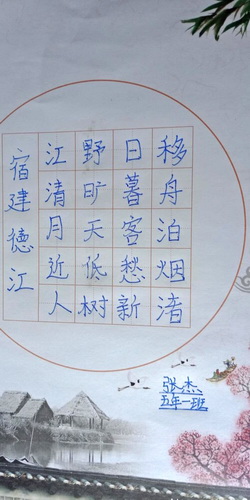 宿建德江
移舟泊烟渚
日暮客愁新
野旷天低树
江清月近人
张杰
五年一班